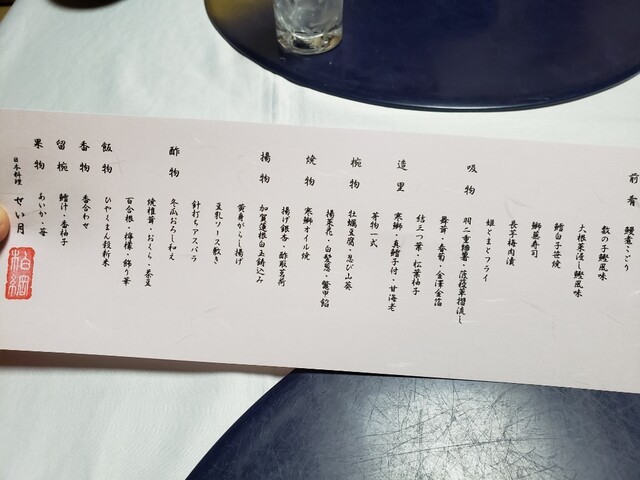 前肴
鰻煮こごり
数の子鰹風味
大根菜浸し鰹風味
鱈白子笹焼
鰤蕪寿司
長芋梅肉漬
姫とまとフライ
吸物
羽二重蟹薯・菠薐草摺流し
舞茸・春菊・金澤金箔
結三つ葉・松葉柚子
造里
寒鰤・真鱈子付・甘海老
芽物一式
椀物
牡蠣豆腐・忍び山葵
揚菜花・白髪葱・鼈甲餡
焼物
寒鰤オイル焼
揚げ銀杏・酢取茗荷
揚物
加賀蓮根白玉鋳込み
黄身がらし揚げ
豆乳ソース敷き
針打ちアスパラ
酢物
冬瓜おろし和え
焼椎茸・おくら・茶豆
百合根・檸檬・飾り華
飯物
ひゃくまん穀新米
香物
香合わせ
留椀
鱈汁・香柚子
果物
あいか・苺
日本料理
せい月